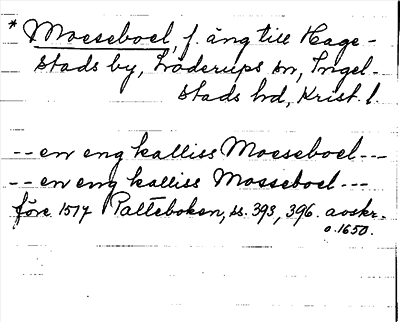 * Moeseboel, f. äng till Hage-
stads by, Löderups sn, Ingel-
stads hd, Krist. l.
-- en eng kalliss Moeseboel ---
-- en eng kalliss Mosseboel ---
före 1517 Palteboken, ss. 393, 396. avskr.
o. 1650.